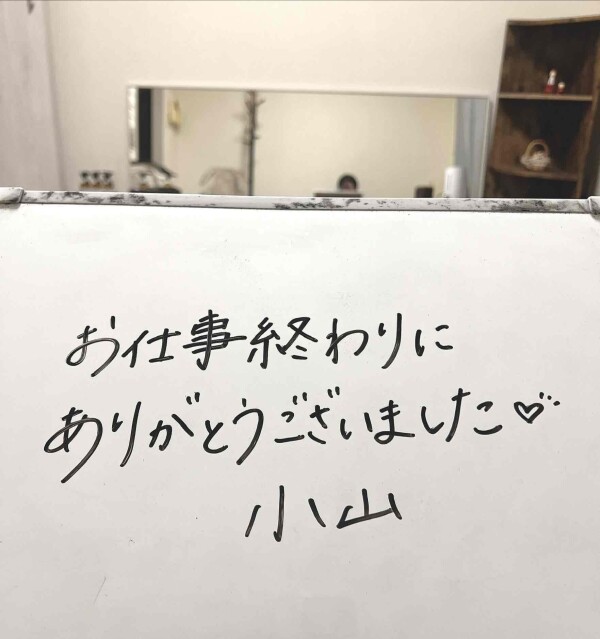 お仕事終わりに
ありがとうございました♡
小山